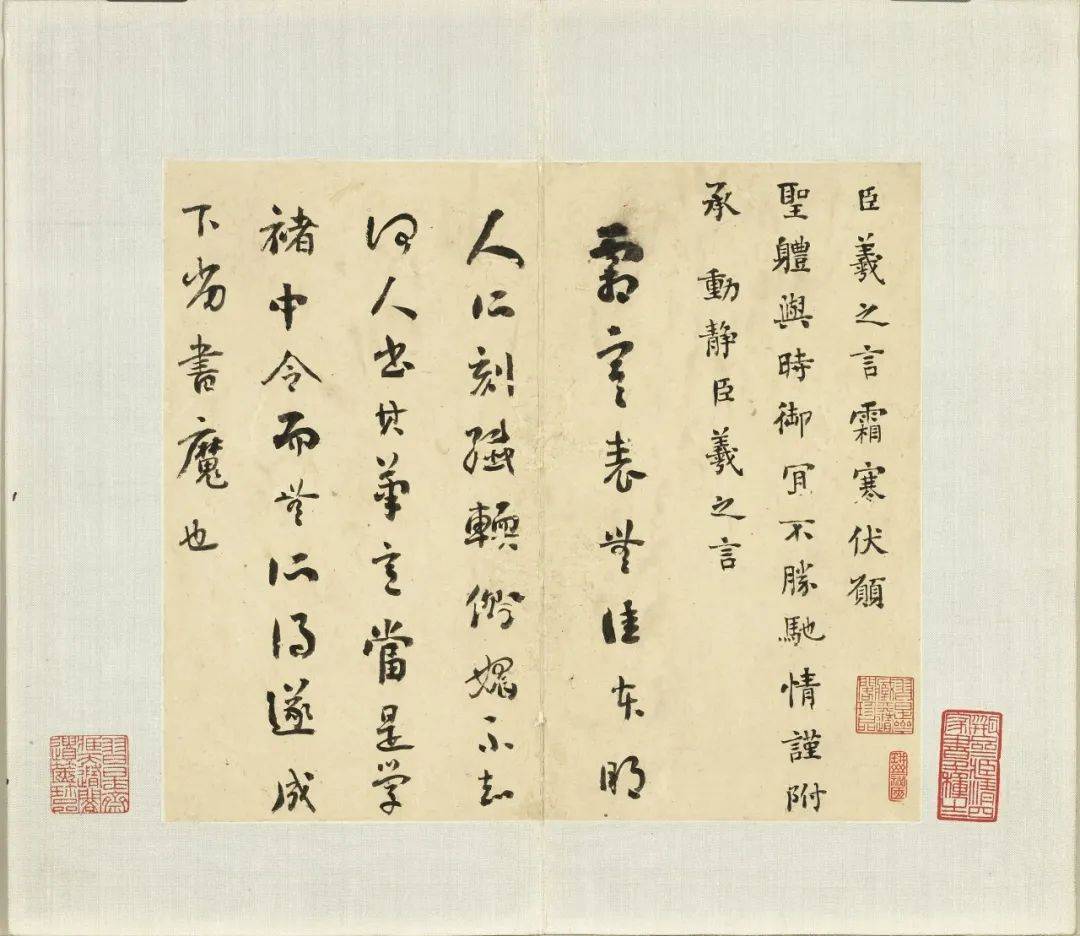 臣羲之言霜寒伏願
聖體與時御宜不勝馳情謹附
承動静臣羲之言
霜寒表無佳本明
人所刻纖輭俗媚不知
何人書其筆意當是學
褚中令而無所得遂成
下劣書魔也